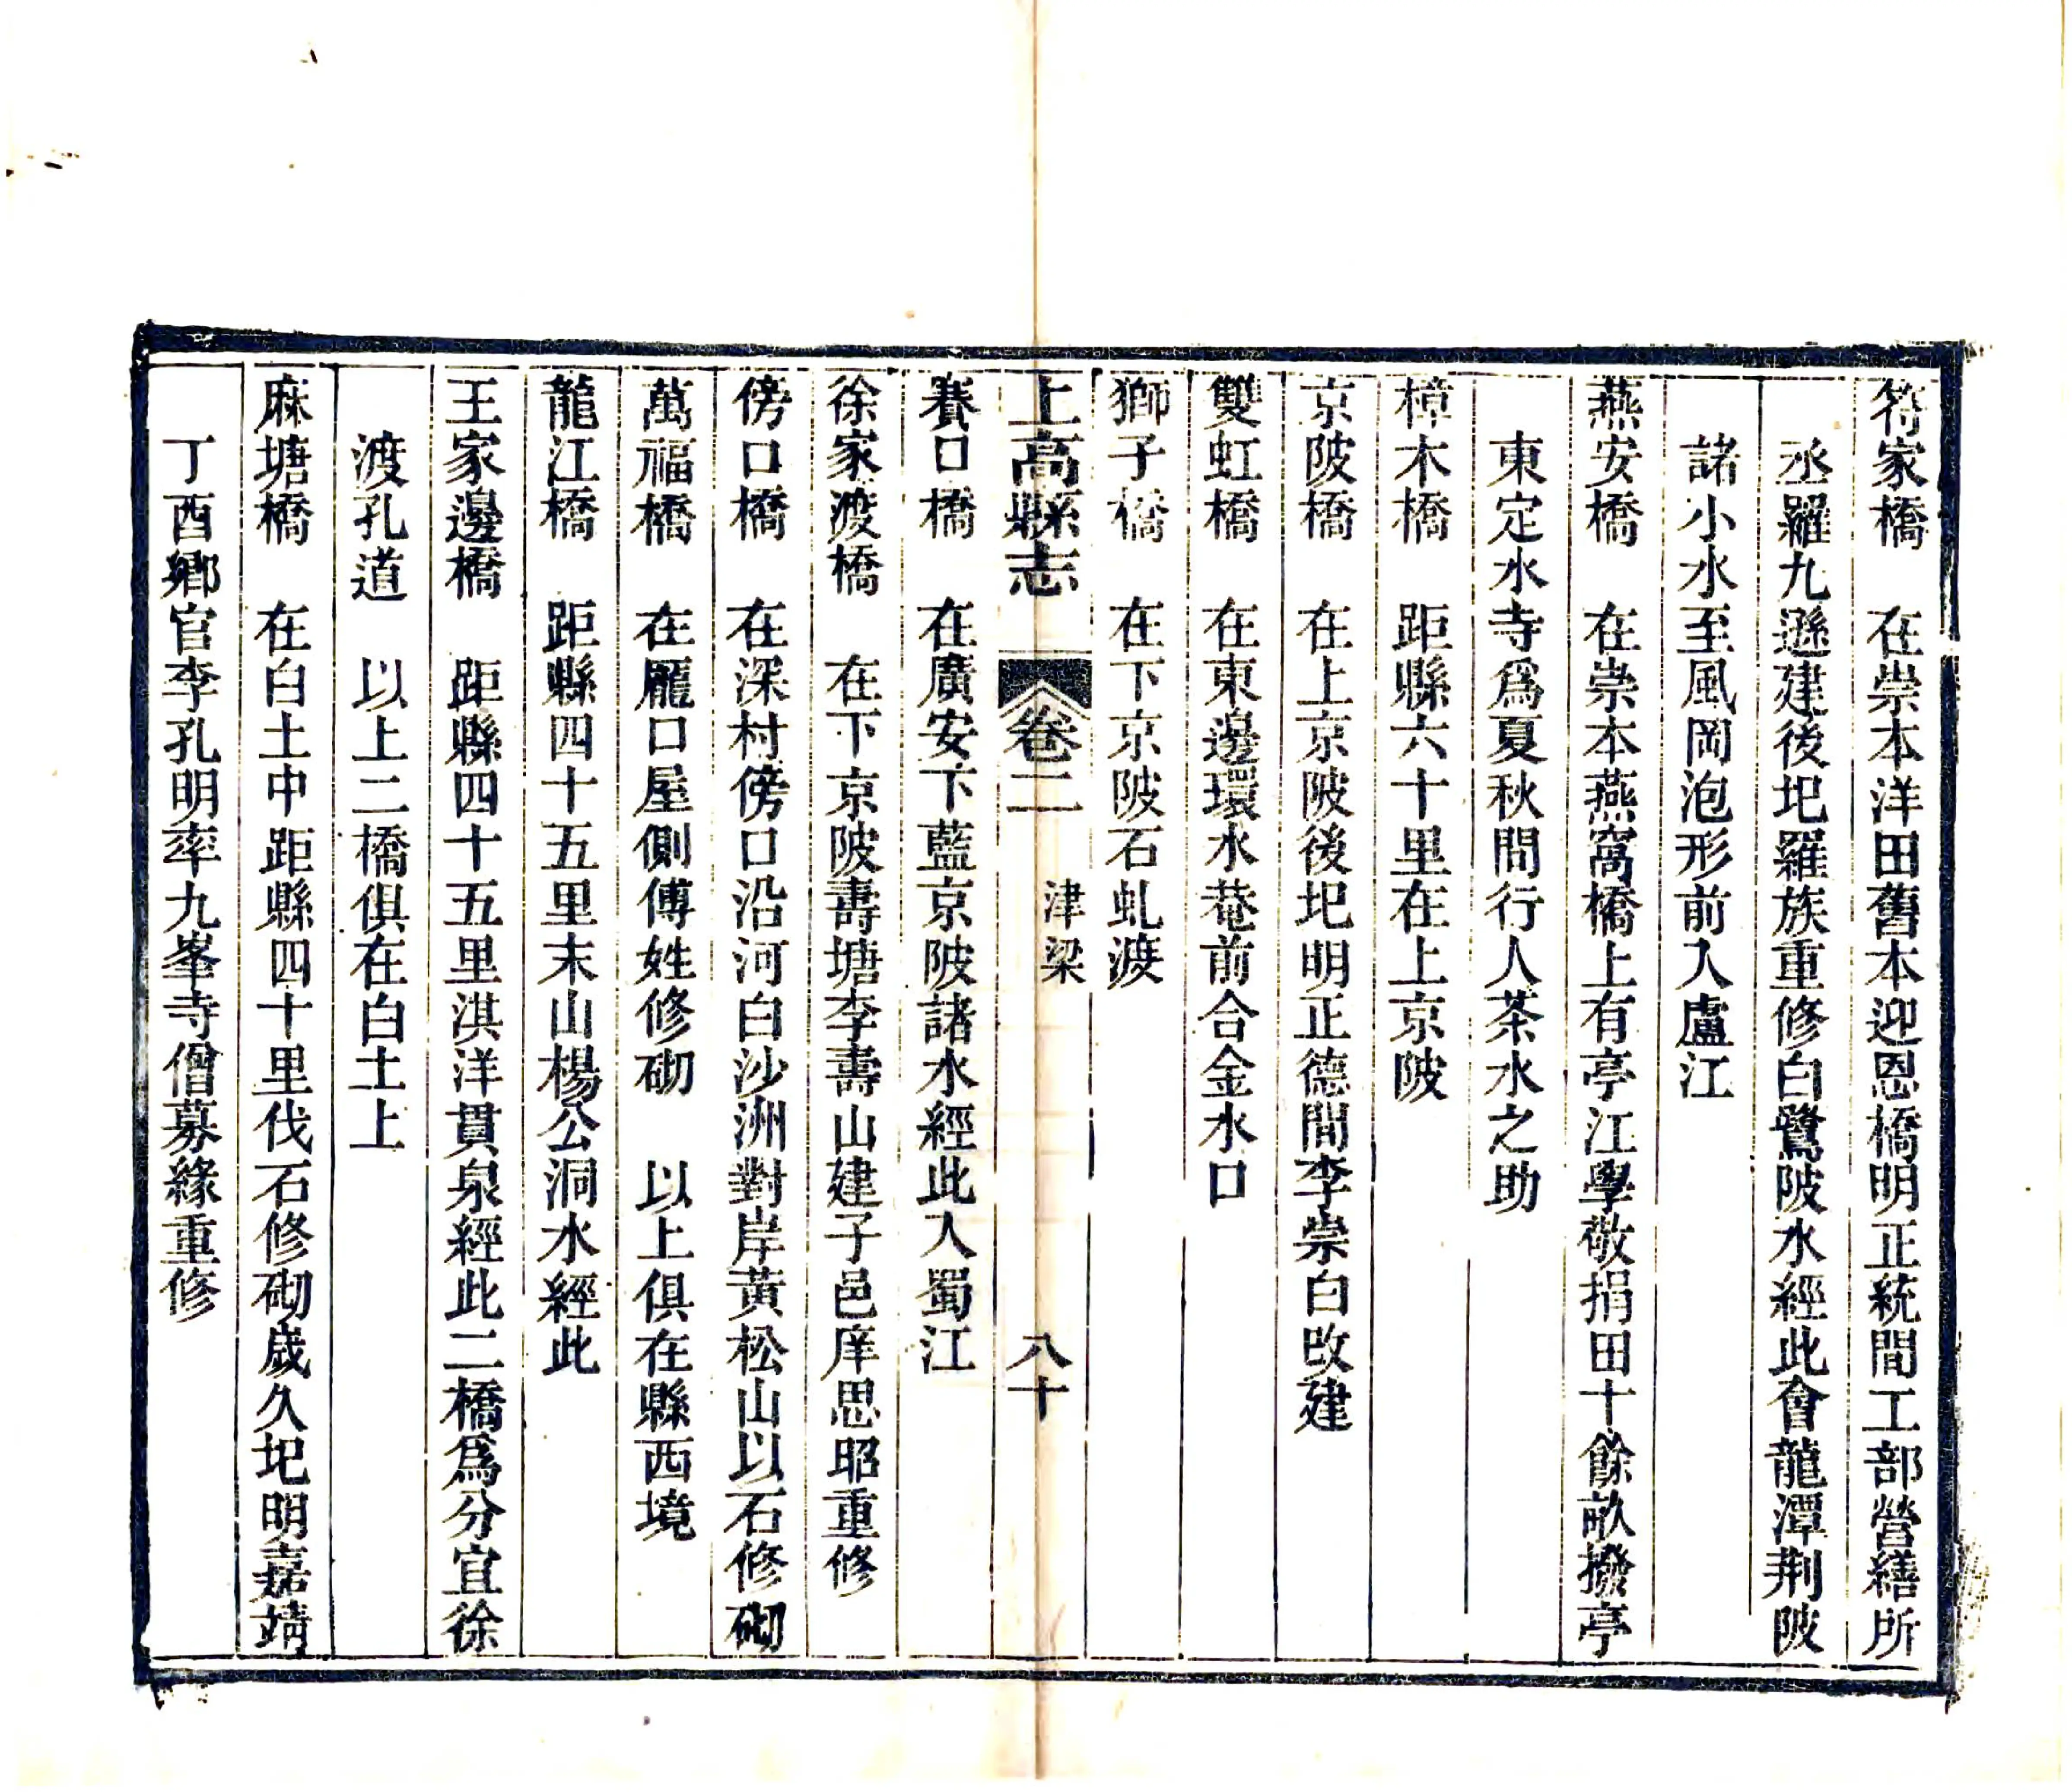 符家橋　在崇本洋田舊本迎恩橋明正統間工部營繕所
丞羅九遜建後圯羅族重修白鷺陂水經此會龍潭荆陂
諸小水至風岡泡形前入盧江
燕安橋　在崇本燕窩橋上有亭江學敬捐田十餘畝撥亭
東定水寺爲夏秋間行人茶水之助
樟木橋　距縣六十里在上京陂
京陂橋　在上京陂後圯明正德間李崇白改建
雙虹橋　在東邊環水菴前合金水口
獅子橋　在下京陂石虬渡
上高縣志　卷二　津梁　八十
賽口橋　在廣安下藍京陂諸水經此入蜀江
徐家渡橋　在下京陂壽塘李壽山建子邑庠思昭重修
傍口橋　在深村傍口沿河白沙洲對岸黃松山以石修砌
萬福橋　在龎口屋側傅姓修砌　以上俱在縣西境
龍江橋　距縣四十五里末山楊公洞水經此
王家邊橋　距縣四十五里淇洋貫泉經此二橋爲分宜徐
渡孔道　以上二橋俱在白土上
麻塘橋　在白土中距縣四十里伐石修砌歲久圯明嘉靖
丁酉鄉官李孔明率九峯寺僧募緣重修